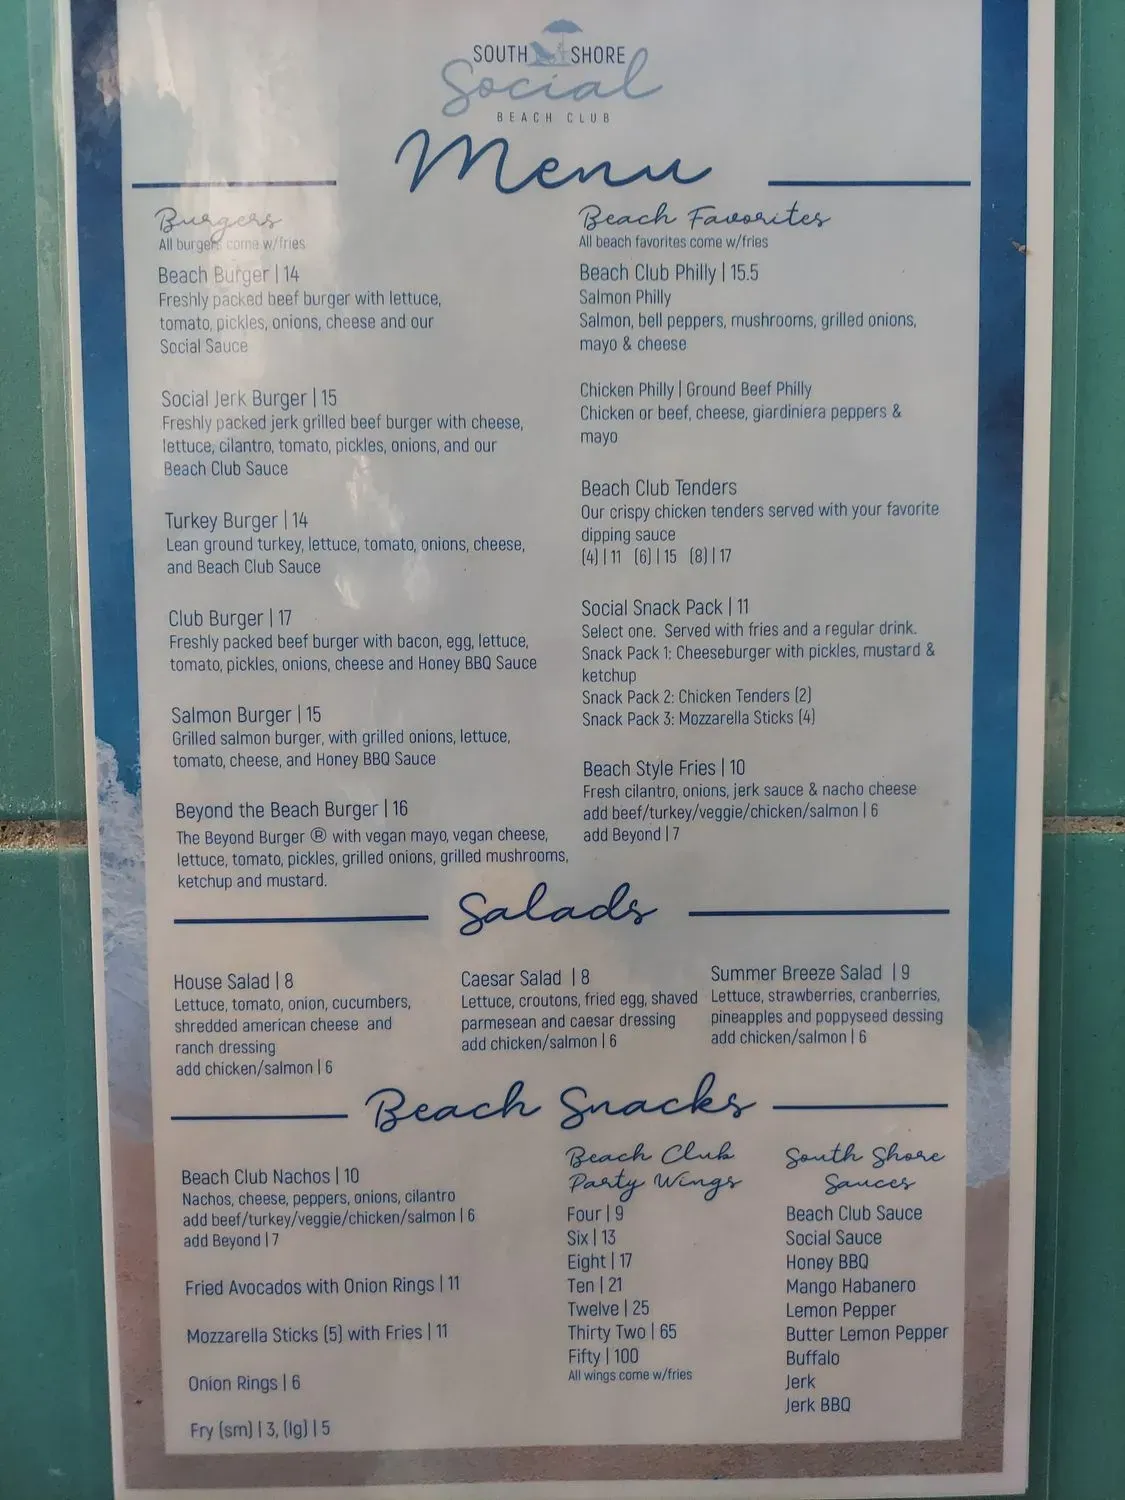 SOUTH SHORE
Social
BEACH CLUB
Menu
Burgers
All burgers come w/fries
Beach Burger | 14
Freshly packed beef burger with lettuce,
tomato, pickles, onions, cheese and our
Social Sauce
Social Jerk Burger | 15
Freshly packed jerk grilled beef burger with cheese,
lettuce, cilantro, tomato, pickles, onions, and our
Beach Club Sauce
Turkey Burger | 14
Lean ground turkey, lettuce, tomato, onions, cheese,
and Beach Club Sauce
Club Burger | 17
Freshly packed beef burger with bacon, egg, lettuce,
tomato, pickles, onions, cheese and Honey BBQ Sauce
Salmon Burger | 15
Grilled salmon burger, with grilled onions, lettuce,
tomato, cheese, and Honey BBQ Sauce
Beyond the Beach Burger | 16
The Beyond Burger ® with vegan mayo, vegan cheese,
lettuce, tomato, pickles, grilled onions, grilled mushrooms,
ketchup and mustard.
Beach Favorites
All beach favorites come w/fries
Beach Club Philly | 15.5
Salmon Philly
Salmon, bell peppers, mushrooms, grilled onions,
mayo & cheese
Chicken Philly | Ground Beef Philly
Chicken or beef, cheese, giardiniera peppers &
mayo
Beach Club Tenders
Our crispy chicken tenders served with your favorite
dipping sauce
(4) | 11 (6) | 15 (8) | 17
Social Snack Pack | 11
Select one. Served with fries and a regular drink.
Snack Pack 1: Cheeseburger with pickles, mustard &
ketchup
Snack Pack 2: Chicken Tenders (2)
Snack Pack 3: Mozzarella Sticks (4)
Beach Style Fries | 10
Fresh cilantro, onions, jerk sauce & nacho cheese
add beef/turkey/veggie/chicken/salmon | 6
add Beyond | 7
Salads
House Salad | 8
Lettuce, tomato, onion, cucumbers,
shredded american cheese and
ranch dressing
add chicken/salmon | 6
Caesar Salad | 8
Lettuce, croutons, fried egg, shaved
parmesean and caesar dressing
add chicken/salmon | 6
Summer Breeze Salad | 9
Lettuce, strawberries, cranberries,
pineapples and poppyseed dessing
add chicken/salmon | 6
Beach Snacks
Beach Club Nachos | 10
Nachos, cheese, peppers, onions, cilantro
add beef/turkey/veggie/chicken/salmon | 6
add Beyond | 7
Fried Avocados with Onion Rings | 11
Mozzarella Sticks (5) with Fries | 11
Onion Rings | 6
Fry (sm) | 3, (lg) | 5
Beach Club
Party Wings
Four | 9
Six | 13
Eight | 17
Ten | 21
Twelve | 25
Thirty Two | 65
Fifty | 100
All wings come w/fries
South Shore
Sauces
Beach Club Sauce
Social Sauce
Honey BBQ
Mango Habanero
Lemon Pepper
Butter Lemon Pepper
Buffalo
Jerk
Jerk BBQ